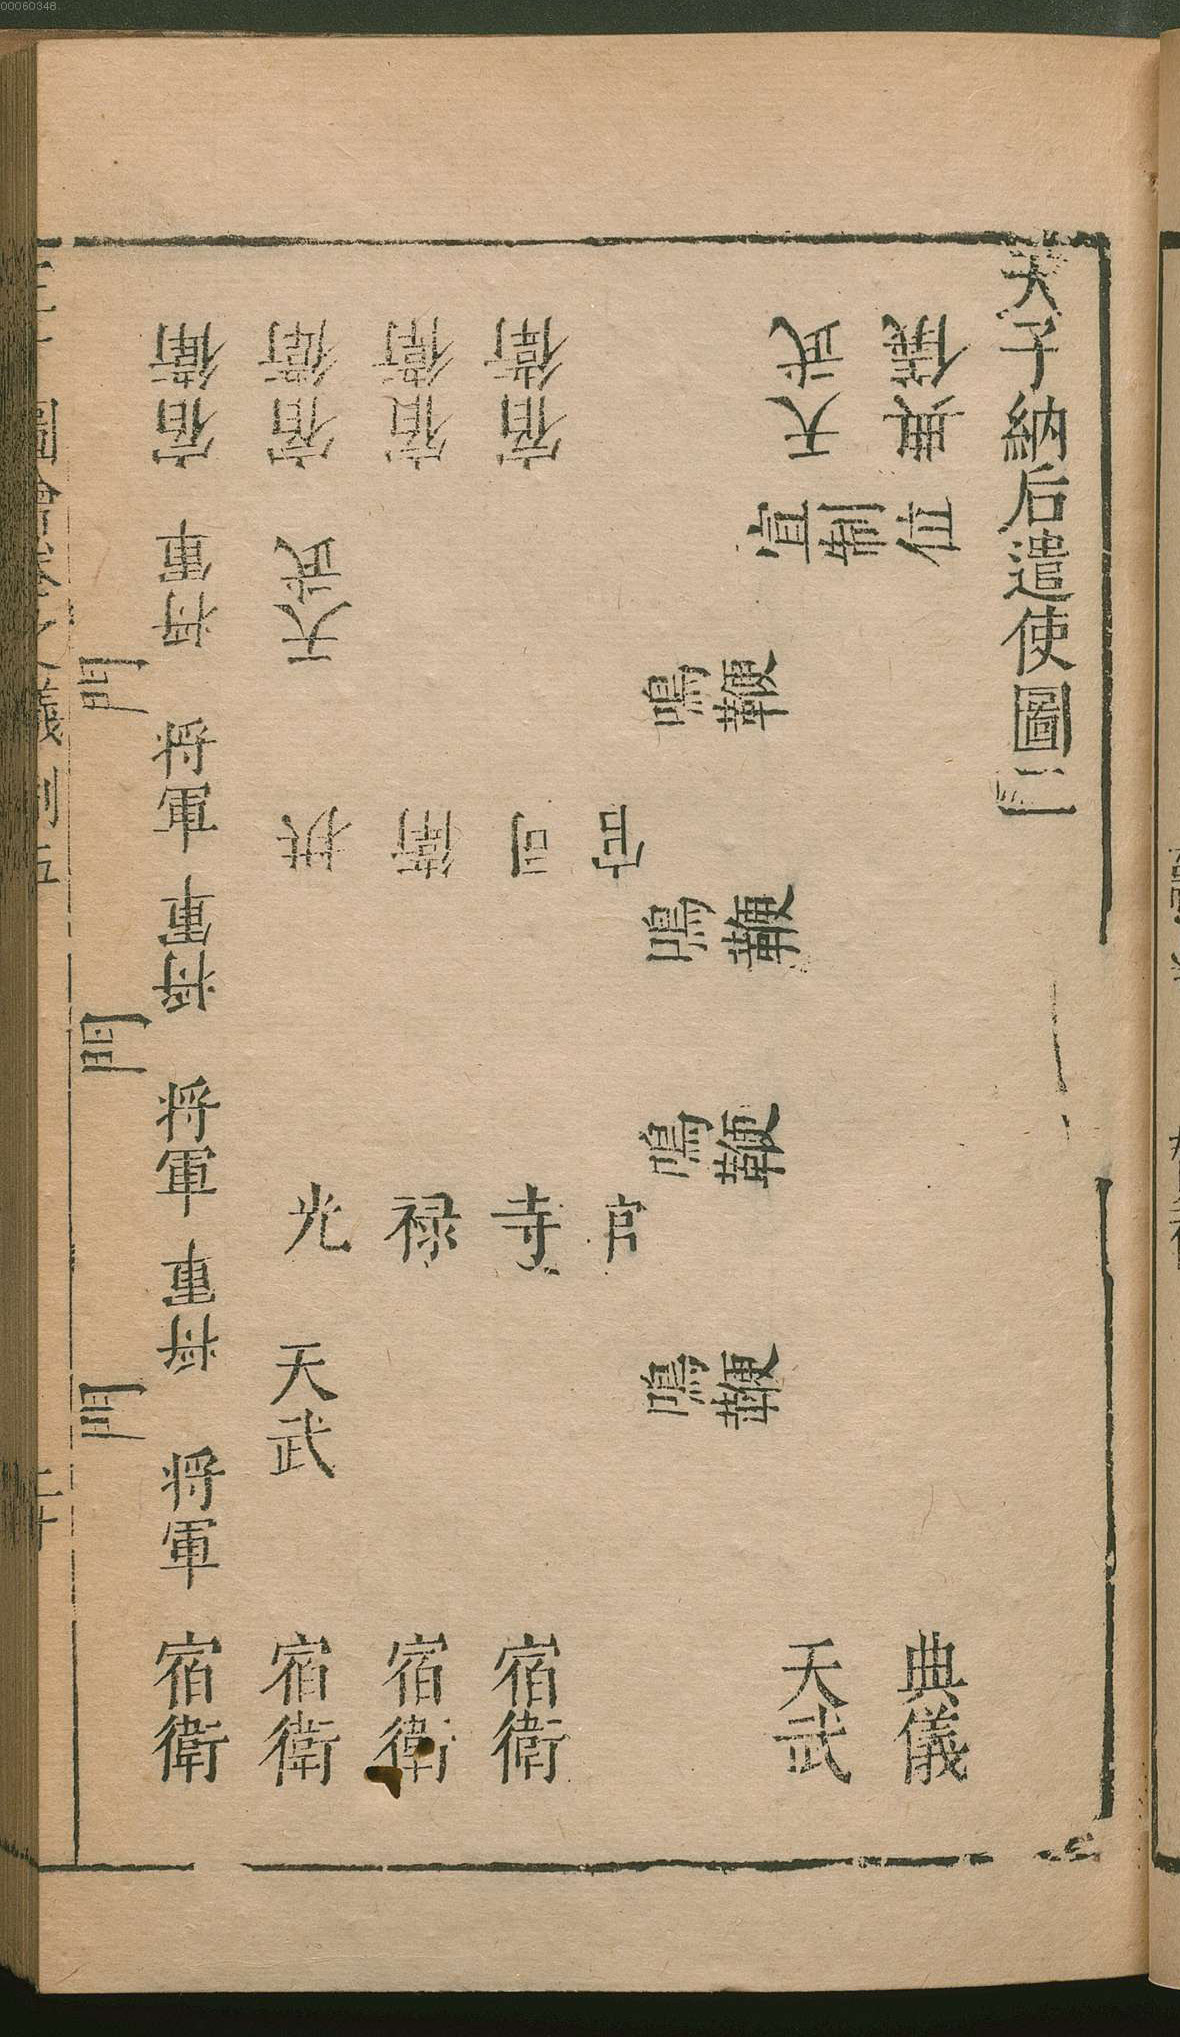 00060348
天子納后遣使圖二
典儀
宣制位
典儀
天武
天武
鳴鞭
鳴鞭
鳴鞭
鳴鞭
宿衛
宿衛
宿衛
宿衛
拱衛司官
光禄寺官
宿衛
宿衛
宿衛
宿衛
天武
天武
將軍
將軍
將軍
將軍
將軍
將軍
門
門
門
圖會卷之儀制五